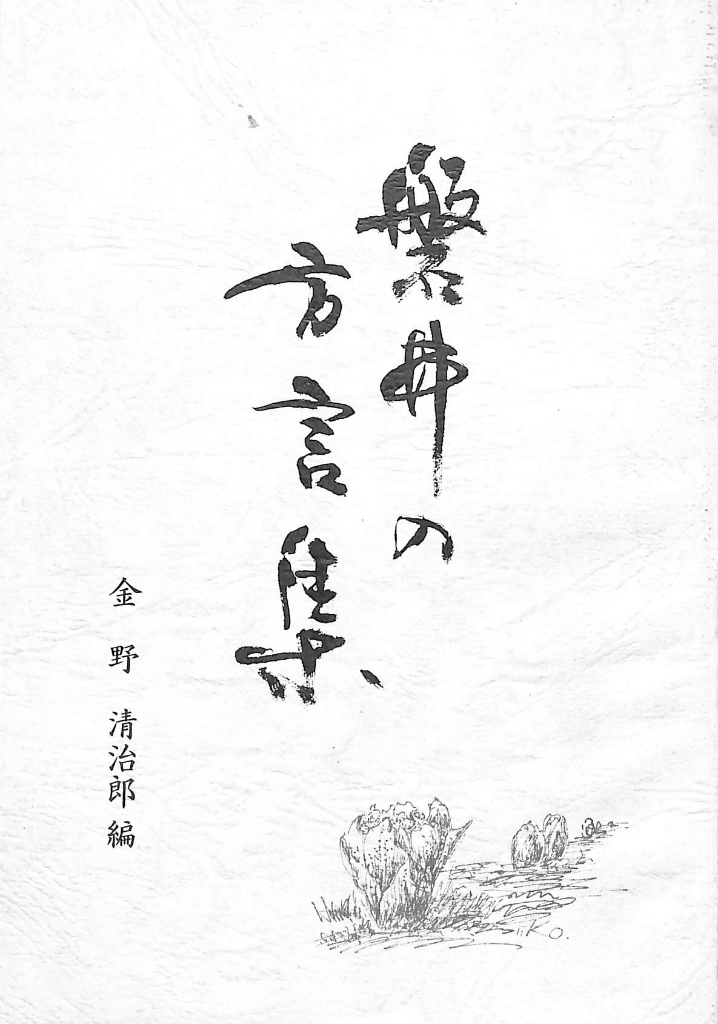 磐井の
方言集
金野 清治郎編
SiiKO.